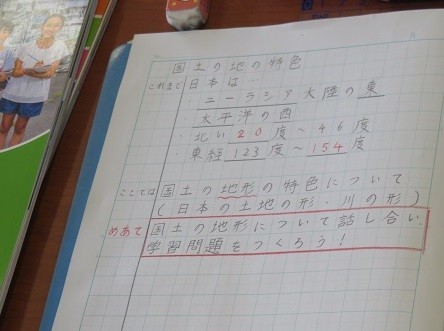 国土の地の特色
これまで 日本は…
・ユーラシア大陸の東
太平洋の西
・北い20度～46度
・東経123度～154度
ここでは 国土の地形の特色について
(日本の土地の形・川の形)
めあて 国土の地形について話し合い、
学習問題をつくろう!